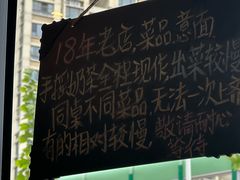 18年老店,菜品,意面
手抓奶茶全程现作出菜较慢
同桌不同菜品,无法一次上齐
有的相对较慢,敬请耐心
等待